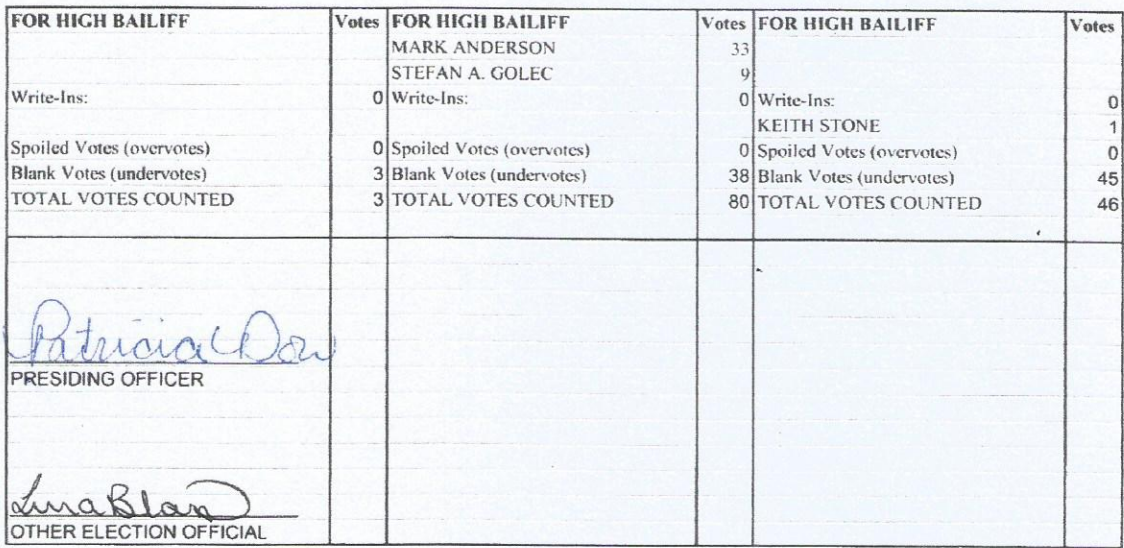 FOR HIGH BAILIFF Votes FOR HIGH BAILIFF Votes FOR HIGH BAILIFF Votes
MARK ANDERSON 33
STEFAN A. GOLEC 9
Write-Ins: 0 Write-Ins: 0 Write-Ins: 0
KEITH STONE 1
Spoiled Votes (overvotes) 0 Spoiled Votes (overvotes) 0 Spoiled Votes (overvotes) 0
Blank Votes (undervotes) 3 Blank Votes (undervotes) 38 Blank Votes (undervotes) 45
TOTAL VOTES COUNTED 3 TOTAL VOTES COUNTED 80 TOTAL VOTES COUNTED 46
Patricia Dow
PRESIDING OFFICER
OTHER ELECTION OFFICIAL